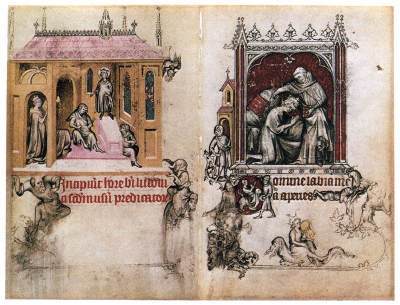 Incipiūt hore bi ludoui
ci scdm usū predicator
Domine labia me
a aperies